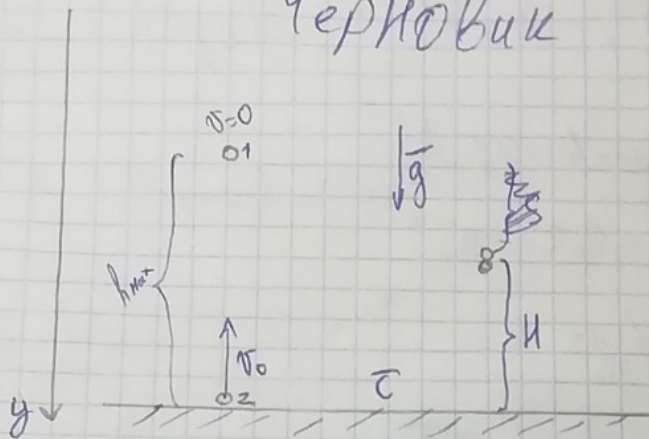 Черновик
v=0
1
g
h max
8
H
v₀
2
c
y